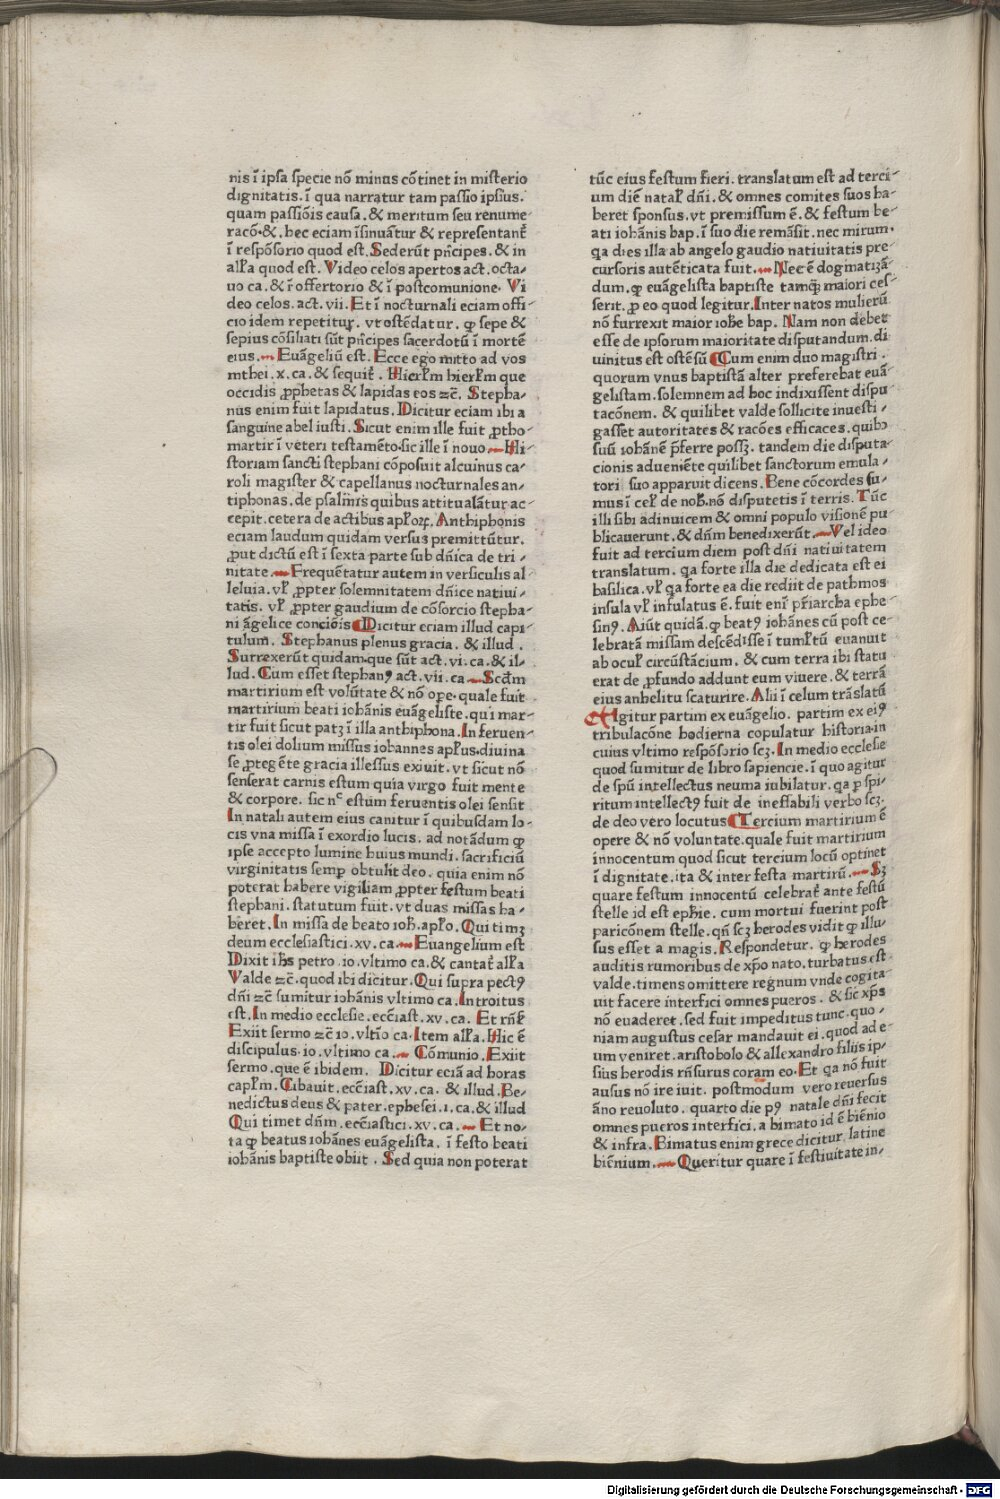 nis ī ipsa specie nō minus cōtinet in misterio
dignitatis. ī qua narratur tam passio ipsius.
quam passiōis causa. & meritum seu renume⸗
racō. &. hec eciam īsinuātur & representant᷑
ī respōsorio quod est. Sederūt pn̄cipes. & in
alɫa quod est. Video celos apertos act. octa⸗
uo ca. & ī offertorio & ī postcomunione. Vi
deo celos. act. vii. Et ī nocturnali eciam offi⸗
cio idem repetitur. vt ostēdatur. ꝙ sepe &
sepius cōsiliati sūt pn̄cipes sacerdotū ī mortē
eius. Euāgeliū est. Ecce ego mitto ad vos
mthei. x. ca. & sequit᷑. Hierɫm hierɫm que
occidis ꝓphetas & lapidas eos ⁊c̄. Stepha⸗
nus enim fuit lapidatus. Dicitur eciam ibi a
sanguine abel iusti. Sicut enim ille fuit ꝓtho
martir ī veteri testamēto. sic ille ī nouo Hi
storiam sancti stephani cōposuit alcuinus ca⸗
roli magister & capellanus nocturnales an⸗
tiphonas. de psalmis quibus attitualātur ac⸗
cepit. cetera de actibus apɫoꝝ. Anthiphonis
eciam laudum quidam versus premittūtur.
ꝓut dictū est ī sexta parte sub dn̄ica de tri⸗
nitate. Frequētatur autem in versiculis al
leluia. vɫ ꝓpter solemnitatem dn̄ice natiui⸗
tatis. vɫ ꝓpter gaudium de cōsorcio stepha⸗
ni āgelice conciōis Dicitur eciam illud capi⸗
tulum. Stephanus plenus gracia. & illud.
Surrexerūt quidam. que sūt act. vi. ca. & il⸗
lud. Cum esset stephanꝰ act. vii. ca. Scd̄m
martirium est volūtate & nō ope. quale fuit
martirium beati iohānis euāgeliste. qui mar⸗
tir fuit sicut patꝫ ī illa anthiphona. In feruen⸗
tis olei dolium missus iohannes apɫus. diuina
se ꝓtegēte gracia illessus exiuit. vt sicut nō
senserat carnis estum quia virgo fuit mente
& corpore. sic nᶜ estum feruentis olei sensit
In natali autem eius canitur ī quibusdam lo⸗
cis vna missa ī exordio lucis. ad notādum ꝙ
ipse accepto lumine huius mundi. sacrificiū
virginitatis semꝑ obtulit deo. quia enim nō
poterat habere vigiliam ꝓpter festum beati
stephani. statutum fuit. vt duas missas ha⸗
beret. In missa de beato ioh̄. apɫo. Qui timꝫ
deum ecclesiastici. xv. ca. Euangelium est
Dixit ih̄s petro. io. vltimo ca. & cantat᷑ alɫa
Valde ⁊c̄. quod ibi dicitur. Qui supra pectꝰ
dn̄i ⁊c̄ sumitur iohānis vltimo ca. Introitus
est. In medio ecclesie. ecc̄iast. xv. ca. Et rn̄ẜ
Exiit sermo ⁊c̄ io. vltīo ca. Item alɫa. Hic ē
discipulus. io. vltimo ca. Cōmunio. Exiit
sermo. que ē ibidem. Dicitur eciā ad horas
capɫm. Cibauit. ecc̄iast. xv. ca. & illud. Be⸗
nedictus deus & pater. ephesei. i. ca. & illud
Qui timet dn̄m. ecc̄iastici. xv. ca. Et no⸗
ta ꝙ beatus iohānes euāgelista. ī festo beati
iohānis baptiste obiit. Sed quia non poterat
tūc eius festum fieri. translatum est ad terci⸗
um diē natal̵ dn̄i. & omnes comites suos ha⸗
beret sponsus. vt premissum ē. & festum be⸗
ati iohānis bap. ī suo die remāsit. nec mirum.
qa dies illa ab angelo gaudio natiuitatis pre⸗
cursoris autēticata fuit. Nec ē dogmatizā⸗
dum. ꝙ euāgelista baptiste tamqꝫ maiori ces⸗
serit. ꝓ eo quod legitur. Inter natos mulierū
nō surrexit maior ioh̄e bap. Nam non debet
esse de ipsorum maioritate disputandum. di
uinitus est ostēsū Cum enim duo magistri.
quorum vnus baptistā alter preferebat euā⸗
gelistam. solemnem ad hoc indixissent dispu
tacōnem. & quilibet valde sollicite inuesti⸗
gasset autoritates & racōes efficaces. quibꝰ
suū iohānē p̄ferre possꝫ. tandem die disputa⸗
cionis adueniēte quilibet sanctorum emula⸗
tori suo apparuit dicens. Bene cōcordes su⸗
mus ī cel̵. de nob̄. nō disputetis ī terris. Tūc
illi sibi adinuicem & omni populo visionē pu
blicauerunt. & dn̄m benedixerūt. Vel ideo
fuit ad tercium diem post dn̄i natiuitatem
translatum. qa forte illa die dedicata est ei
basilica. vɫ qa forte ea die rediit de pathmos
insula vɫ infulatus ē. fuit enī pr̄iarcha ephe
sinꝰ. Aiūt quidā. ꝙ beatꝰ iohānes cū post ce⸗
lebratā missam descēdisse ī tumɫtū euanuit
ab ocul̵ circūstācium. & cum terra ibi statu
erat de ꝓfundo addunt eum viuere. & terrā
eius anhelitu scaturire. Alii ī celum trāslatū
Igitur partim ex euāgelio. partim ex eiꝰ
tribulacōne hodierna copulatur historia. in
cuius vltimo respōsorio scꝫ. In medio ecclesie
quod sumitur de libro sapiencie. ī quo agitur
de spū intellectus neuma iubilatur. qa ꝑ spi⸗
ritum intellectꝰ fuit de ineffabili verbo scꝫ.
de deo vero locutus Tercium martirium ē
opere & nō voluntate. quale fuit martirium
innocentum quod sicut tercium locū optinet
ī dignitate. ita & inter festa martirū. Sꝫ
quare festum innocentū celebrat᷑ ante festū
stelle id est epħie. cum mortui fuerint post
paricōnem stelle. qn̄ scꝫ herodes vidit ꝙ illu⸗
sus esset a magis. Respondetur. ꝙ herodes
auditis rumoribus de xp̄o nato. turbatus est
valde. timens omittere regnum vnde cogita⸗
uit facere interfici omnes pueros. & sic xp̄s
nō euaderet. sed fuit impeditus tunc. quo⸗
niam augustus cesar mandauit ei. quod ad e⸗
um veniret. aristobolo & allexandro filiis ip⸗
sius herodis rn̄surus coram eo. Et qa nō fuit
ausus nō ire iuit. postmodum vero reuersus
āno reuoluto. quarto die pꝰ natale dn̄i fecit
omnes pueros interfici. a bimato id ē biēnio
& infra. Bimatus enim grece dicitur. latine
biēnium. Queritur quare ī festiuitate in⸗
Digitalisierung gefördert durch die Deutsche Forschungsgemeinschaft - DFG